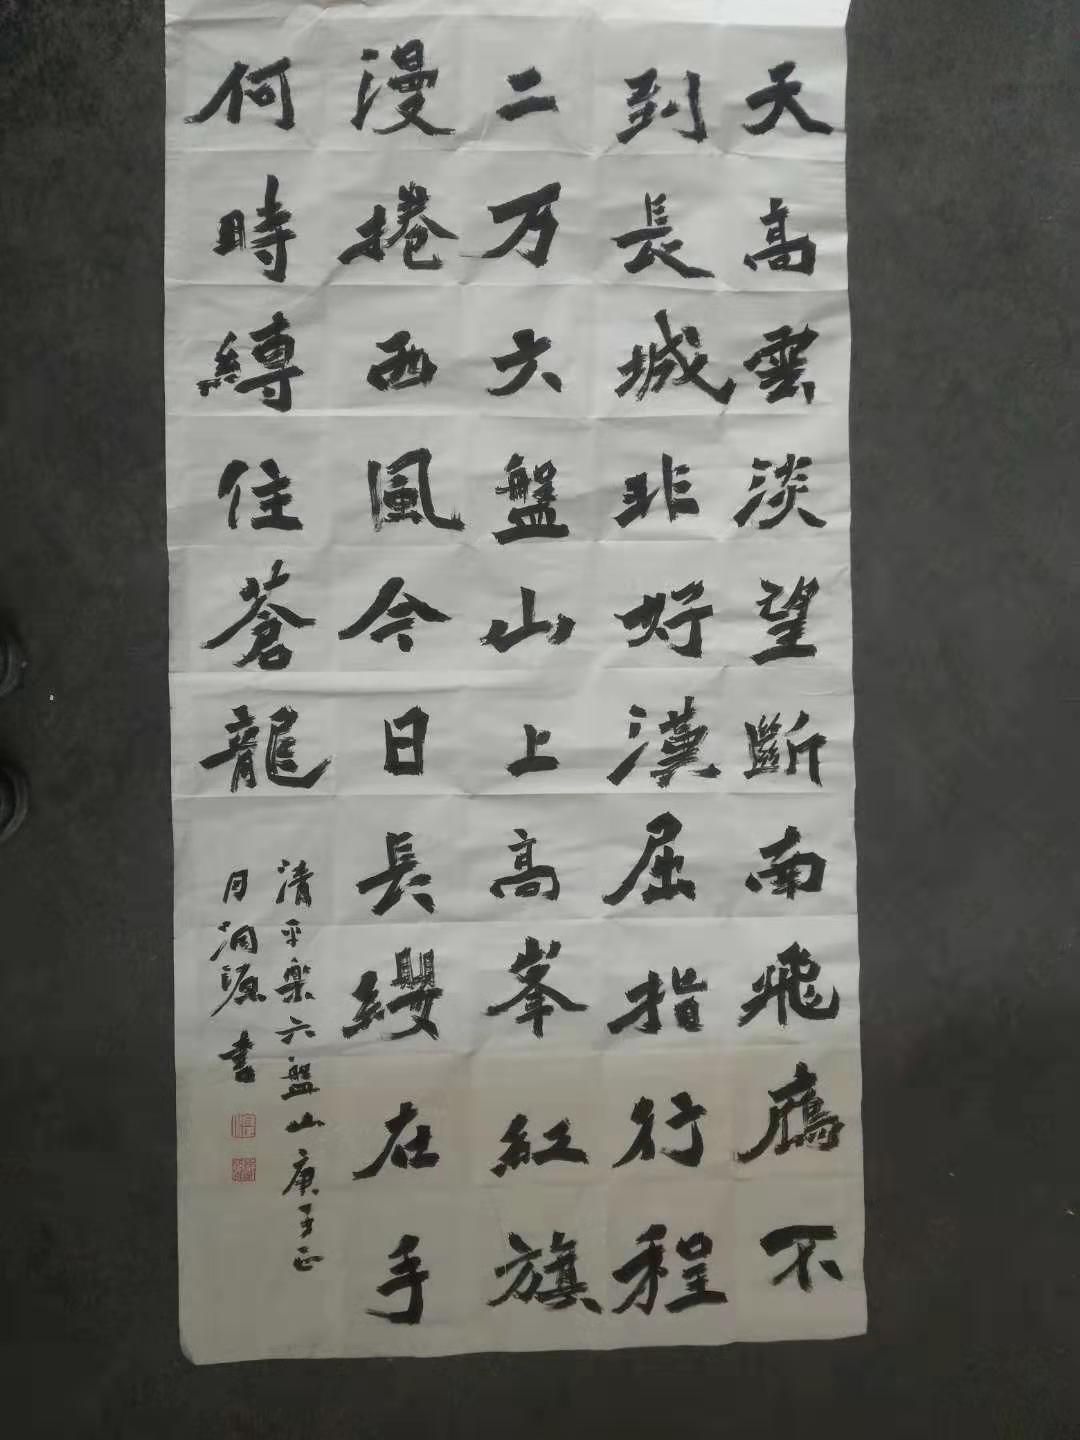 天高雲淡望斷南飛鴈不
到長城非好漢屈指行程
二万六盤山上高峯紅旗
漫捲西風今日長纓在手
何時縛住蒼龍
清平樂六盤山庚子正
月洞源書